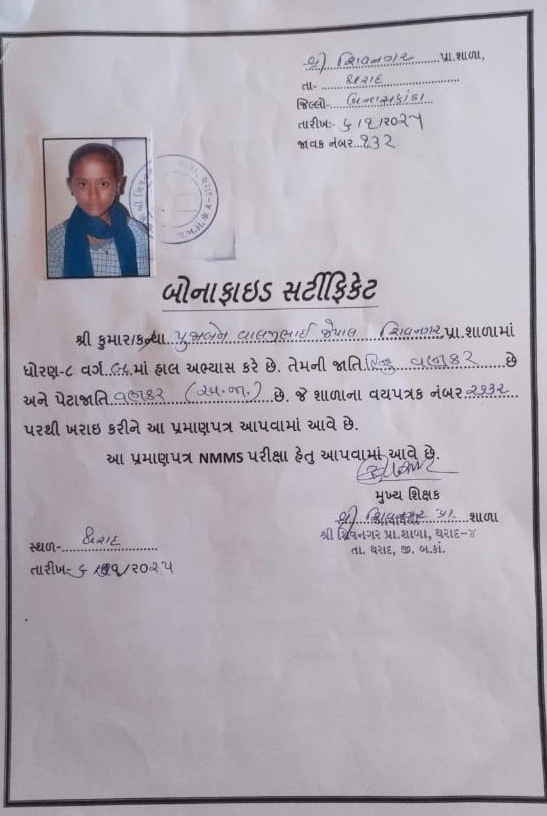 શ્રી શિવનગર પ્રા.શાળા,
તા- થરાદ
જિલ્લો- બનાસકાંઠા
તારીખઃ- ૬/૧/૨૦૨૫
જાવક નંબર..૧૩૨
બોનાફાઇડ સર્ટીફિકેટ
શ્રી કુમાર/કન્યા પુજાબેન વાલજીભાઈ જેપાલ શિવનગર પ્રા.શાળામાં
ધોરણ-૮ વર્ગ માં હાલ અભ્યાસ કરે છે. તેમની જાતિ હિન્દુ વણકર છે
અને પેટાજાતિ વણકર (અ.જા.) છે. જે શાળાના વયપત્રક નંબર ૨૧૩૨
પરથી ખરાઇ કરીને આ પ્રમાણપત્ર આપવામાં આવે છે.
આ પ્રમાણપત્ર NMMS પરીક્ષા હેતુ આપવામાં આવે છે.
મુખ્ય શિક્ષક
શ્રી શિવનગર પ્રા. શાળા
શ્રી શિવનગર પ્રા.શાળા, થરાદ-૪
તા. થરાદ, જી. બ.કાં.
સ્થળ- થરાદ
તારીખ:- ૬ /૧/૨૦૨૫